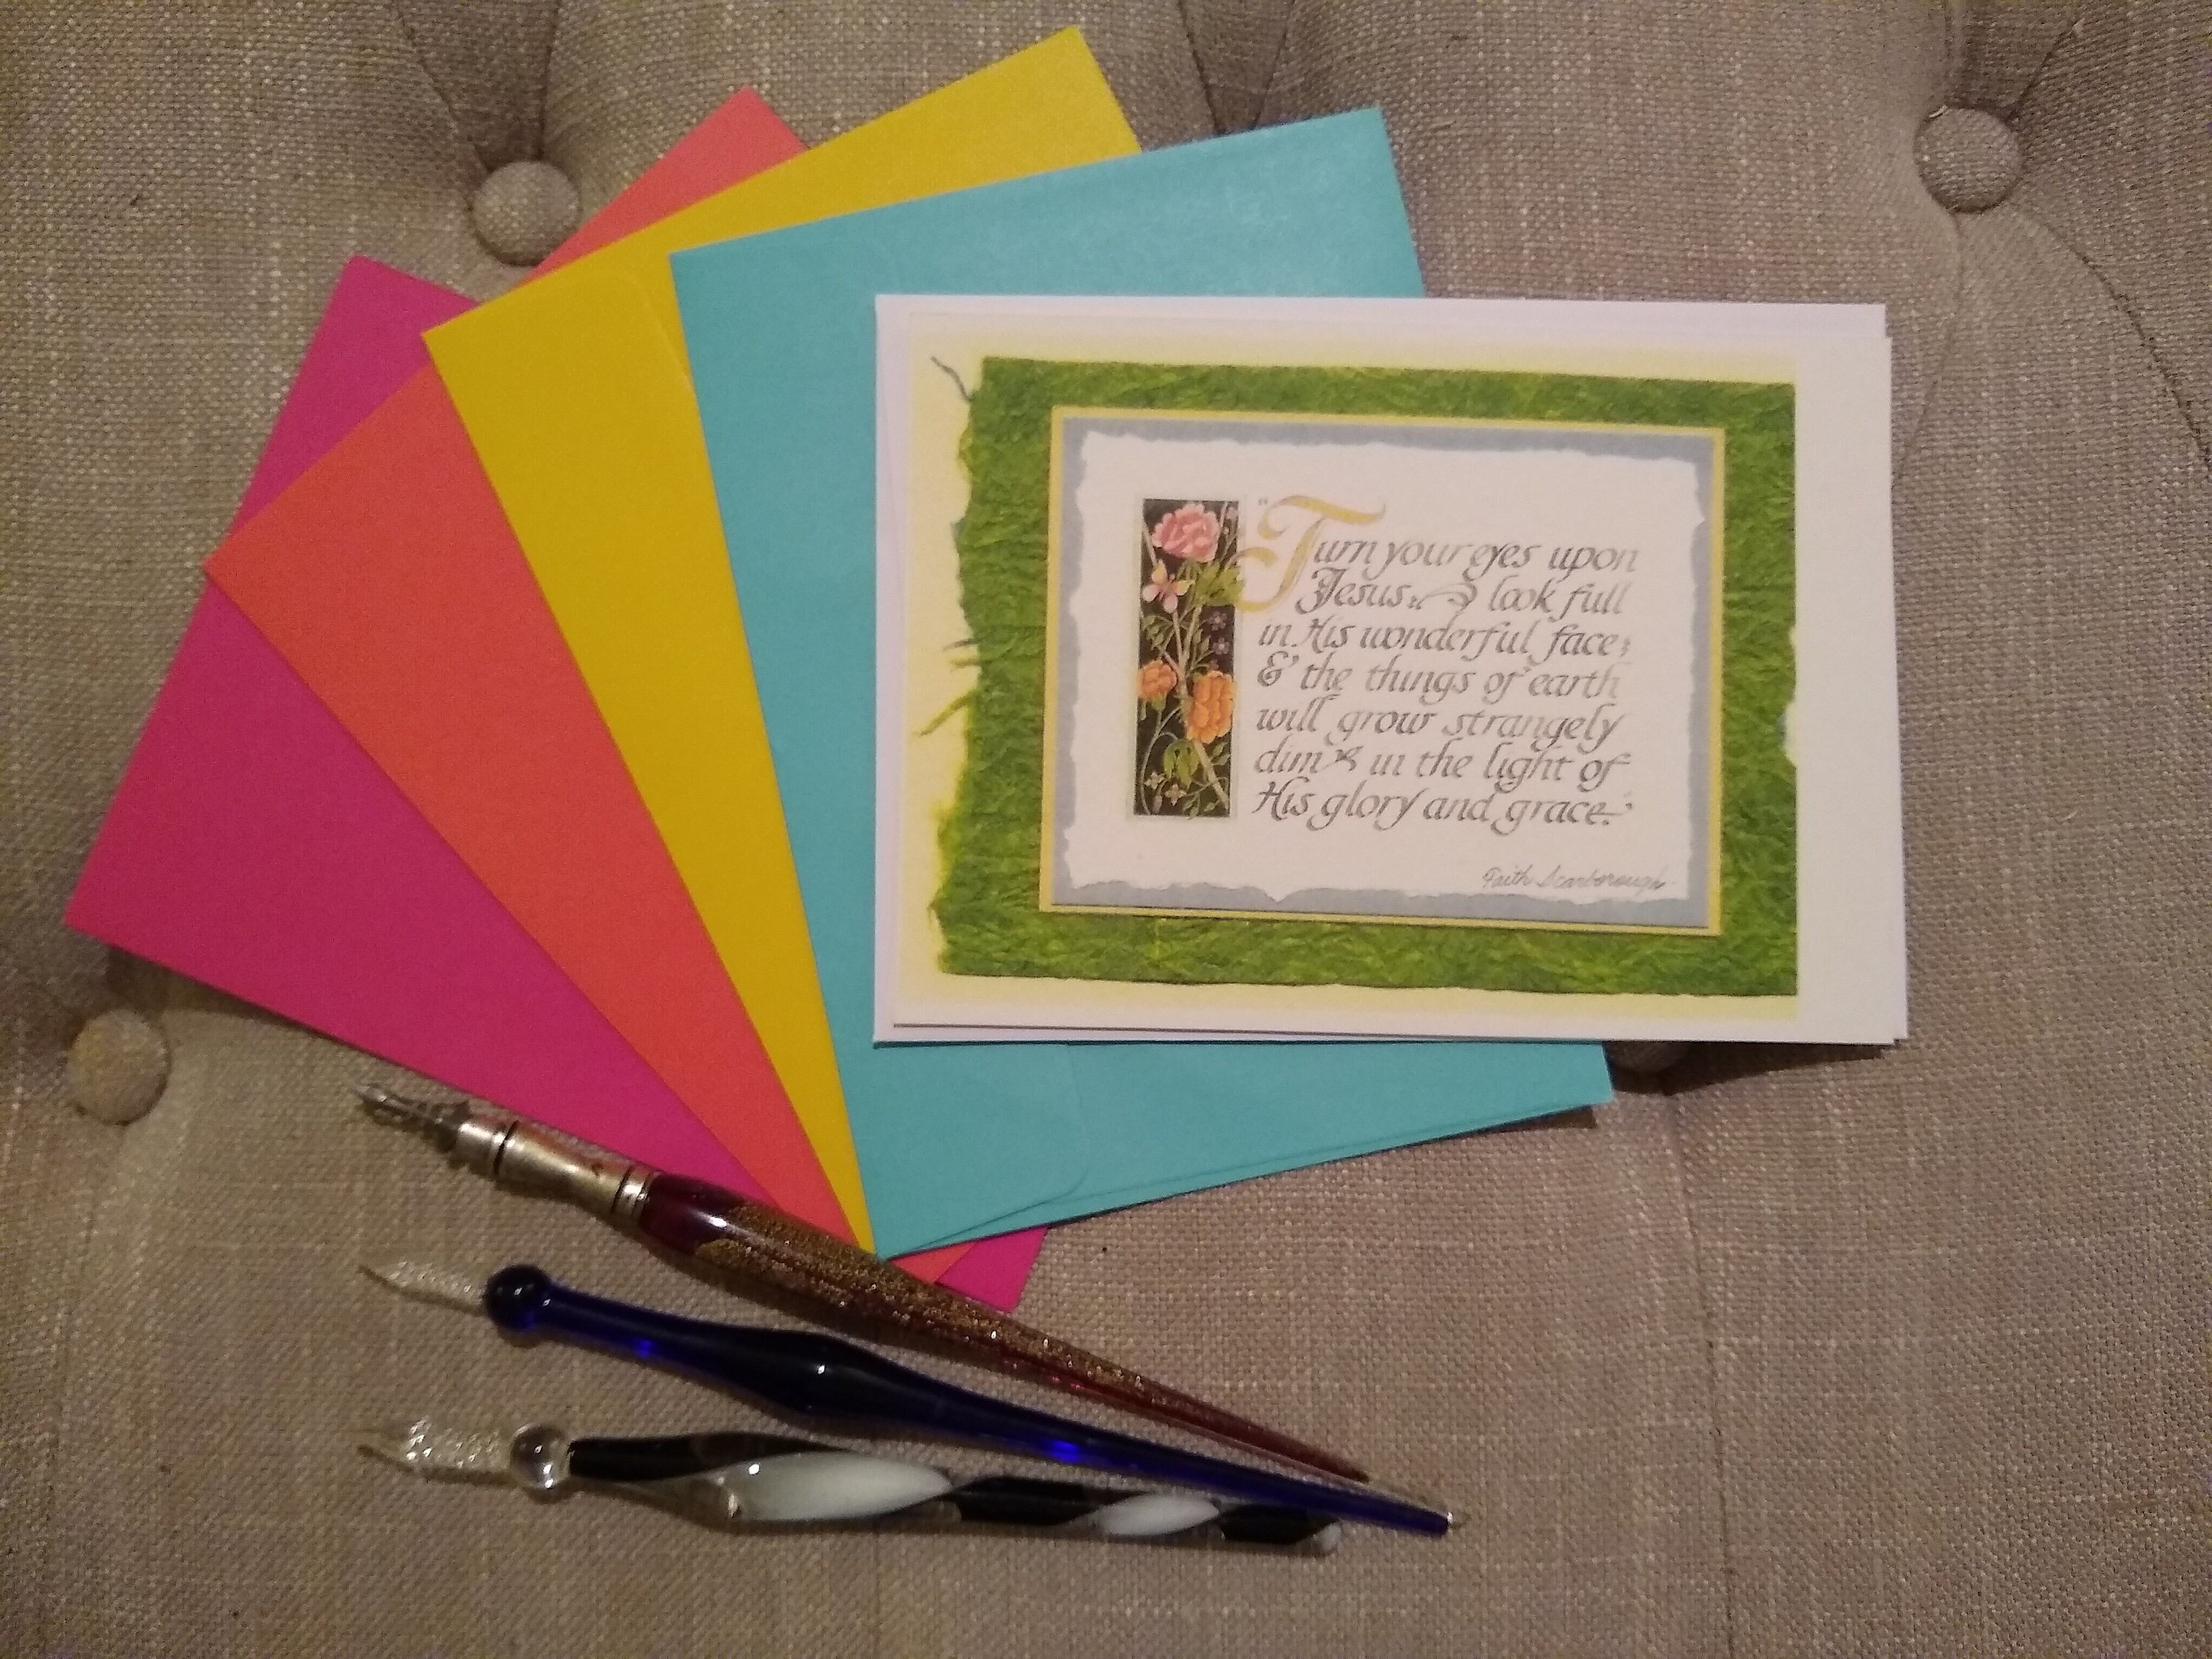 "Turn your eyes upon
Jesus, look full
in His wonderful face;
& the things of earth
will grow strangely
dim in the light of
His glory and grace."
Faith Scarborough